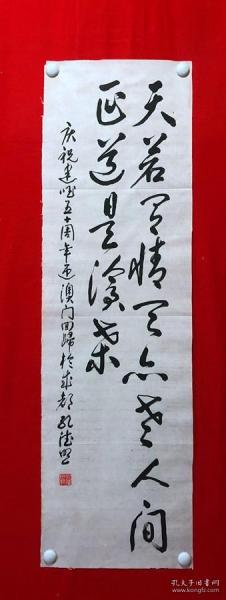 天若有情天亦老人间
正道是滄桑
庆祝建国五十周年迎澳门回歸於成都
孔夫子旧书网
www.kongfz.com